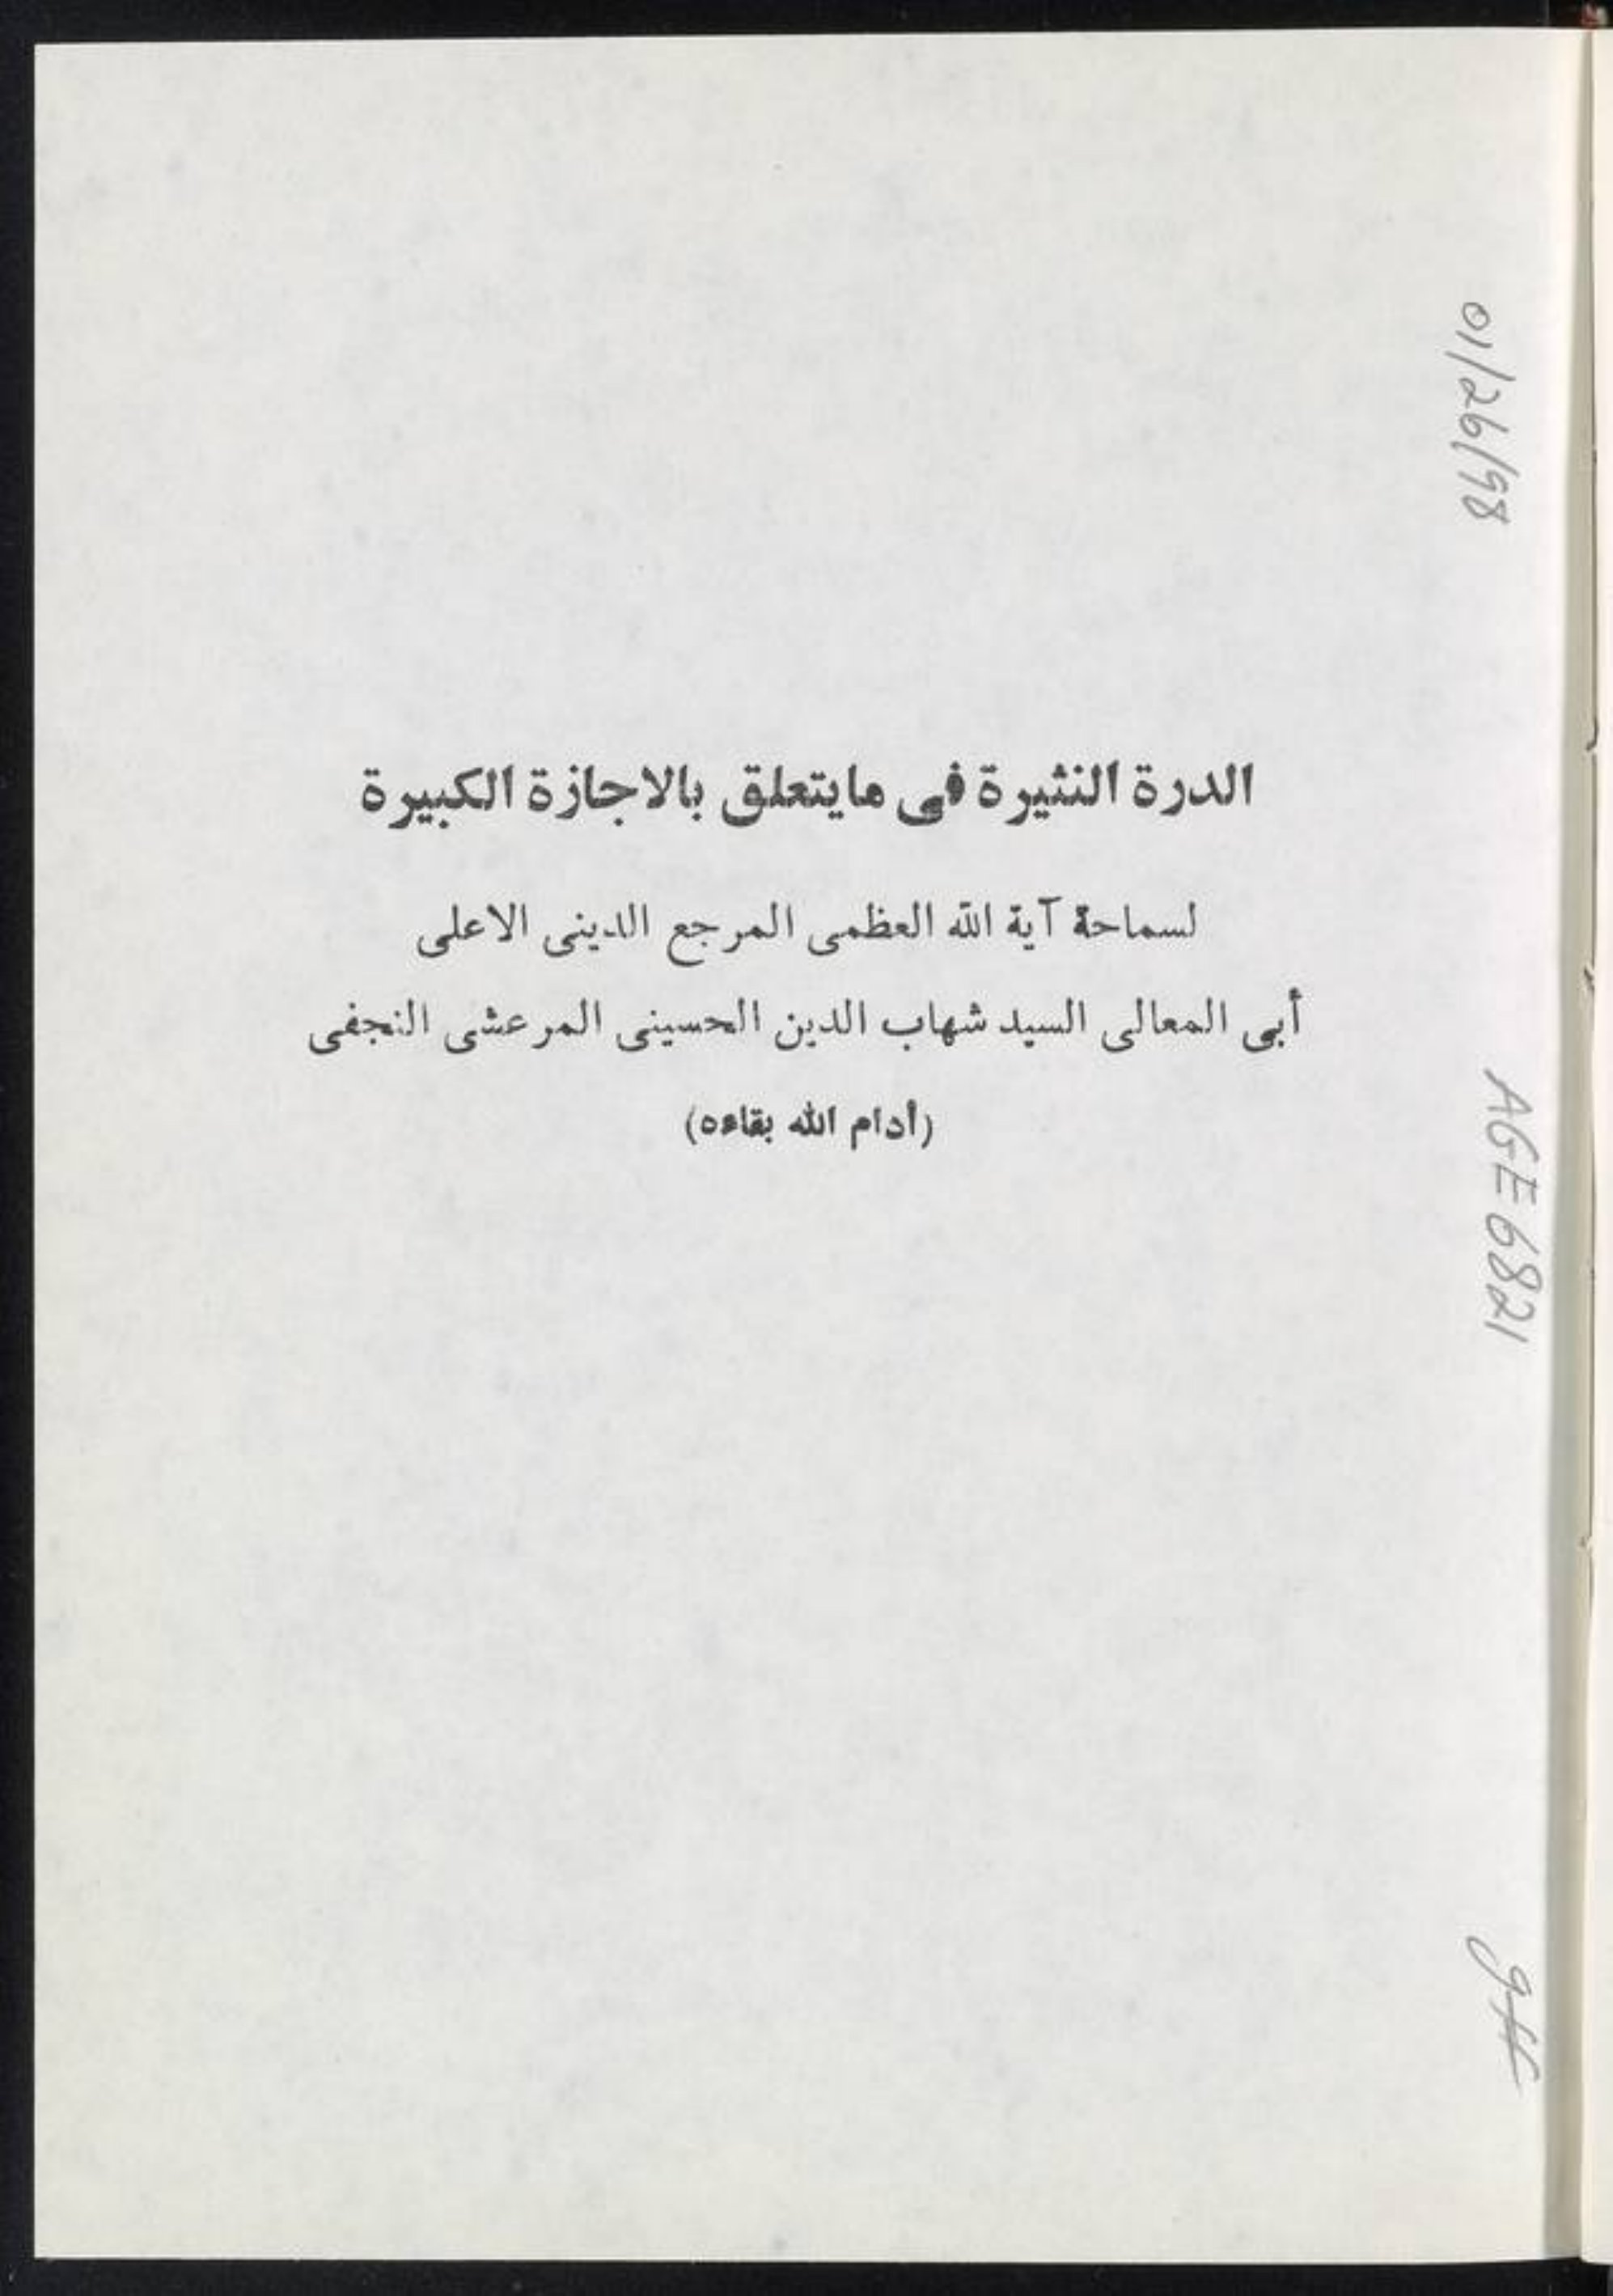 الدرة النثيرة فى مايتعلق بالاجازة الكبيرة
لسماحة آية الله العظمى المرجع الدينى الاعلى
أبى المعالى السيد شهاب الدين الحسينى المرعشى النجفى
(أدام الله بقاءه)
01/26/98
AGE6821